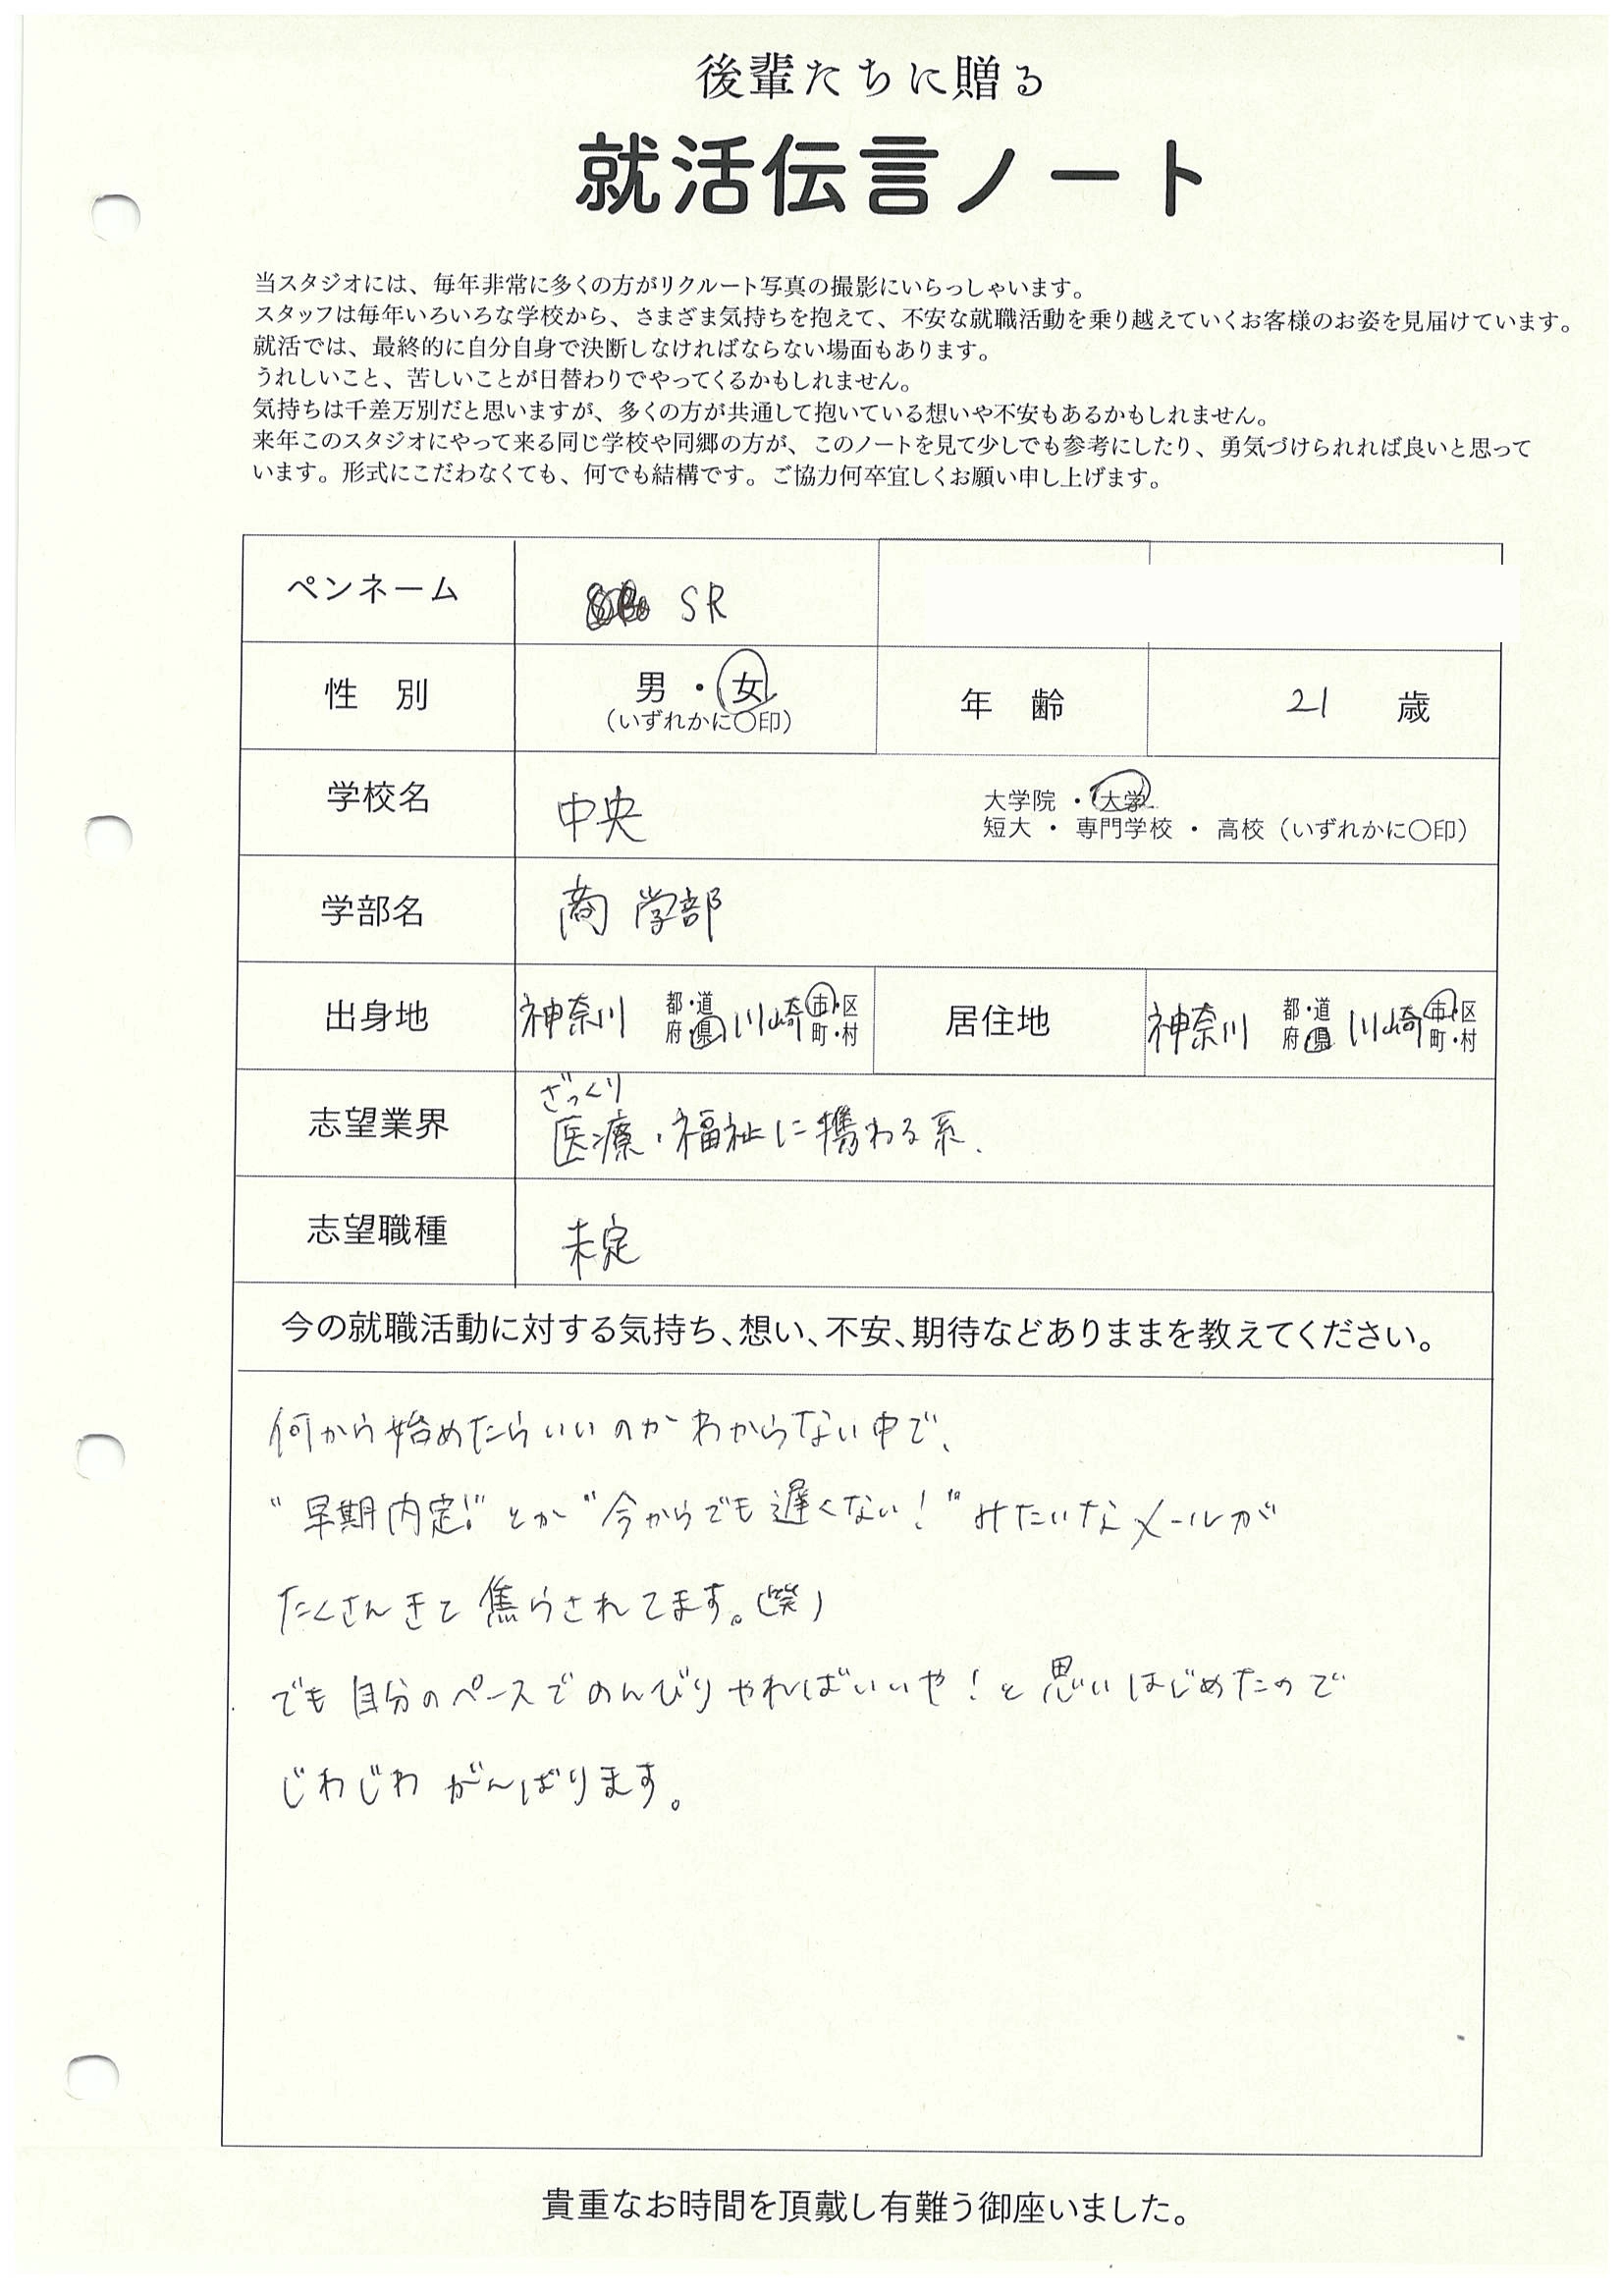 後輩たちに贈る
就活伝言ノート
当スタジオには、毎年非常に多くの方がリクルート写真の撮影にいらっしゃいます。
スタッフは毎年いろいろな学校から、さまざま気持ちを抱えて、不安な就職活動を乗り越えていくお客様のお姿を見届けています。
就活では、最終的に自分自身で決断しなければならない場面もあります。
うれしいこと、苦しいことが日替わりでやってくるかもしれません。
気持ちは千差万別だと思いますが、多くの方が共通して抱いている想いや不安もあるかもしれません。
来年このスタジオにやって来る同じ学校や同郷の方が、このノートを見て少しでも参考にしたり、勇気づけられれば良いと思って
います。形式にこだわなくても、何でも結構です。ご協力何卒宜しくお願い申し上げます。
ペンネーム SR
性 別 男 ・ 女 (いずれかに○印) 年 齢 21 歳
学校名 中央 大学院 ・ 大学
短大 ・ 専門学校 ・ 高校 (いずれかに○印)
学部名 商学部
出身地 神奈川 都・道 府・県 川崎 市・区 町・村 居住地 神奈川 都・道 府・県 川崎 市・区 町・村
ざっくり
志望業界 医療・福祉に携わる系.
志望職種 未定
今の就職活動に対する気持ち、想い、不安、期待などありままを教えてください。
何から始めたらいいのかわからない中で、
"早期内定!"とか"今からでも遅くない!"みたいなメールが
たくさんきて焦らされてます。(笑)
でも自分のペースでのんびりやればいいや!と思いはじめたので
じわじわがんばります。
貴重なお時間を頂戴し有難う御座いました。